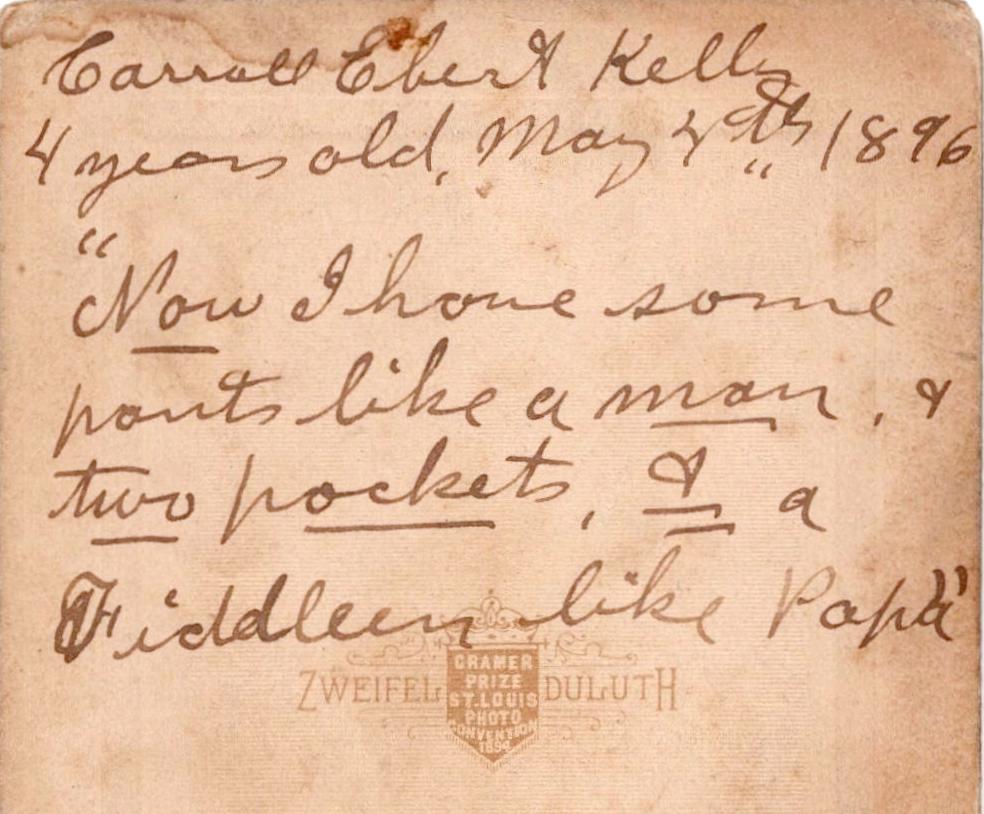 Carroll Ebert Kelly
4 years old, May 4th 1896
"Now I have some
pants like a man, &
two pockets, & a
Fiddleen like Papa"
ZWEIFEL DULUTH
CRAMER
PRIZE
ST. LOUIS
PHOTO
CONVENTION
1894